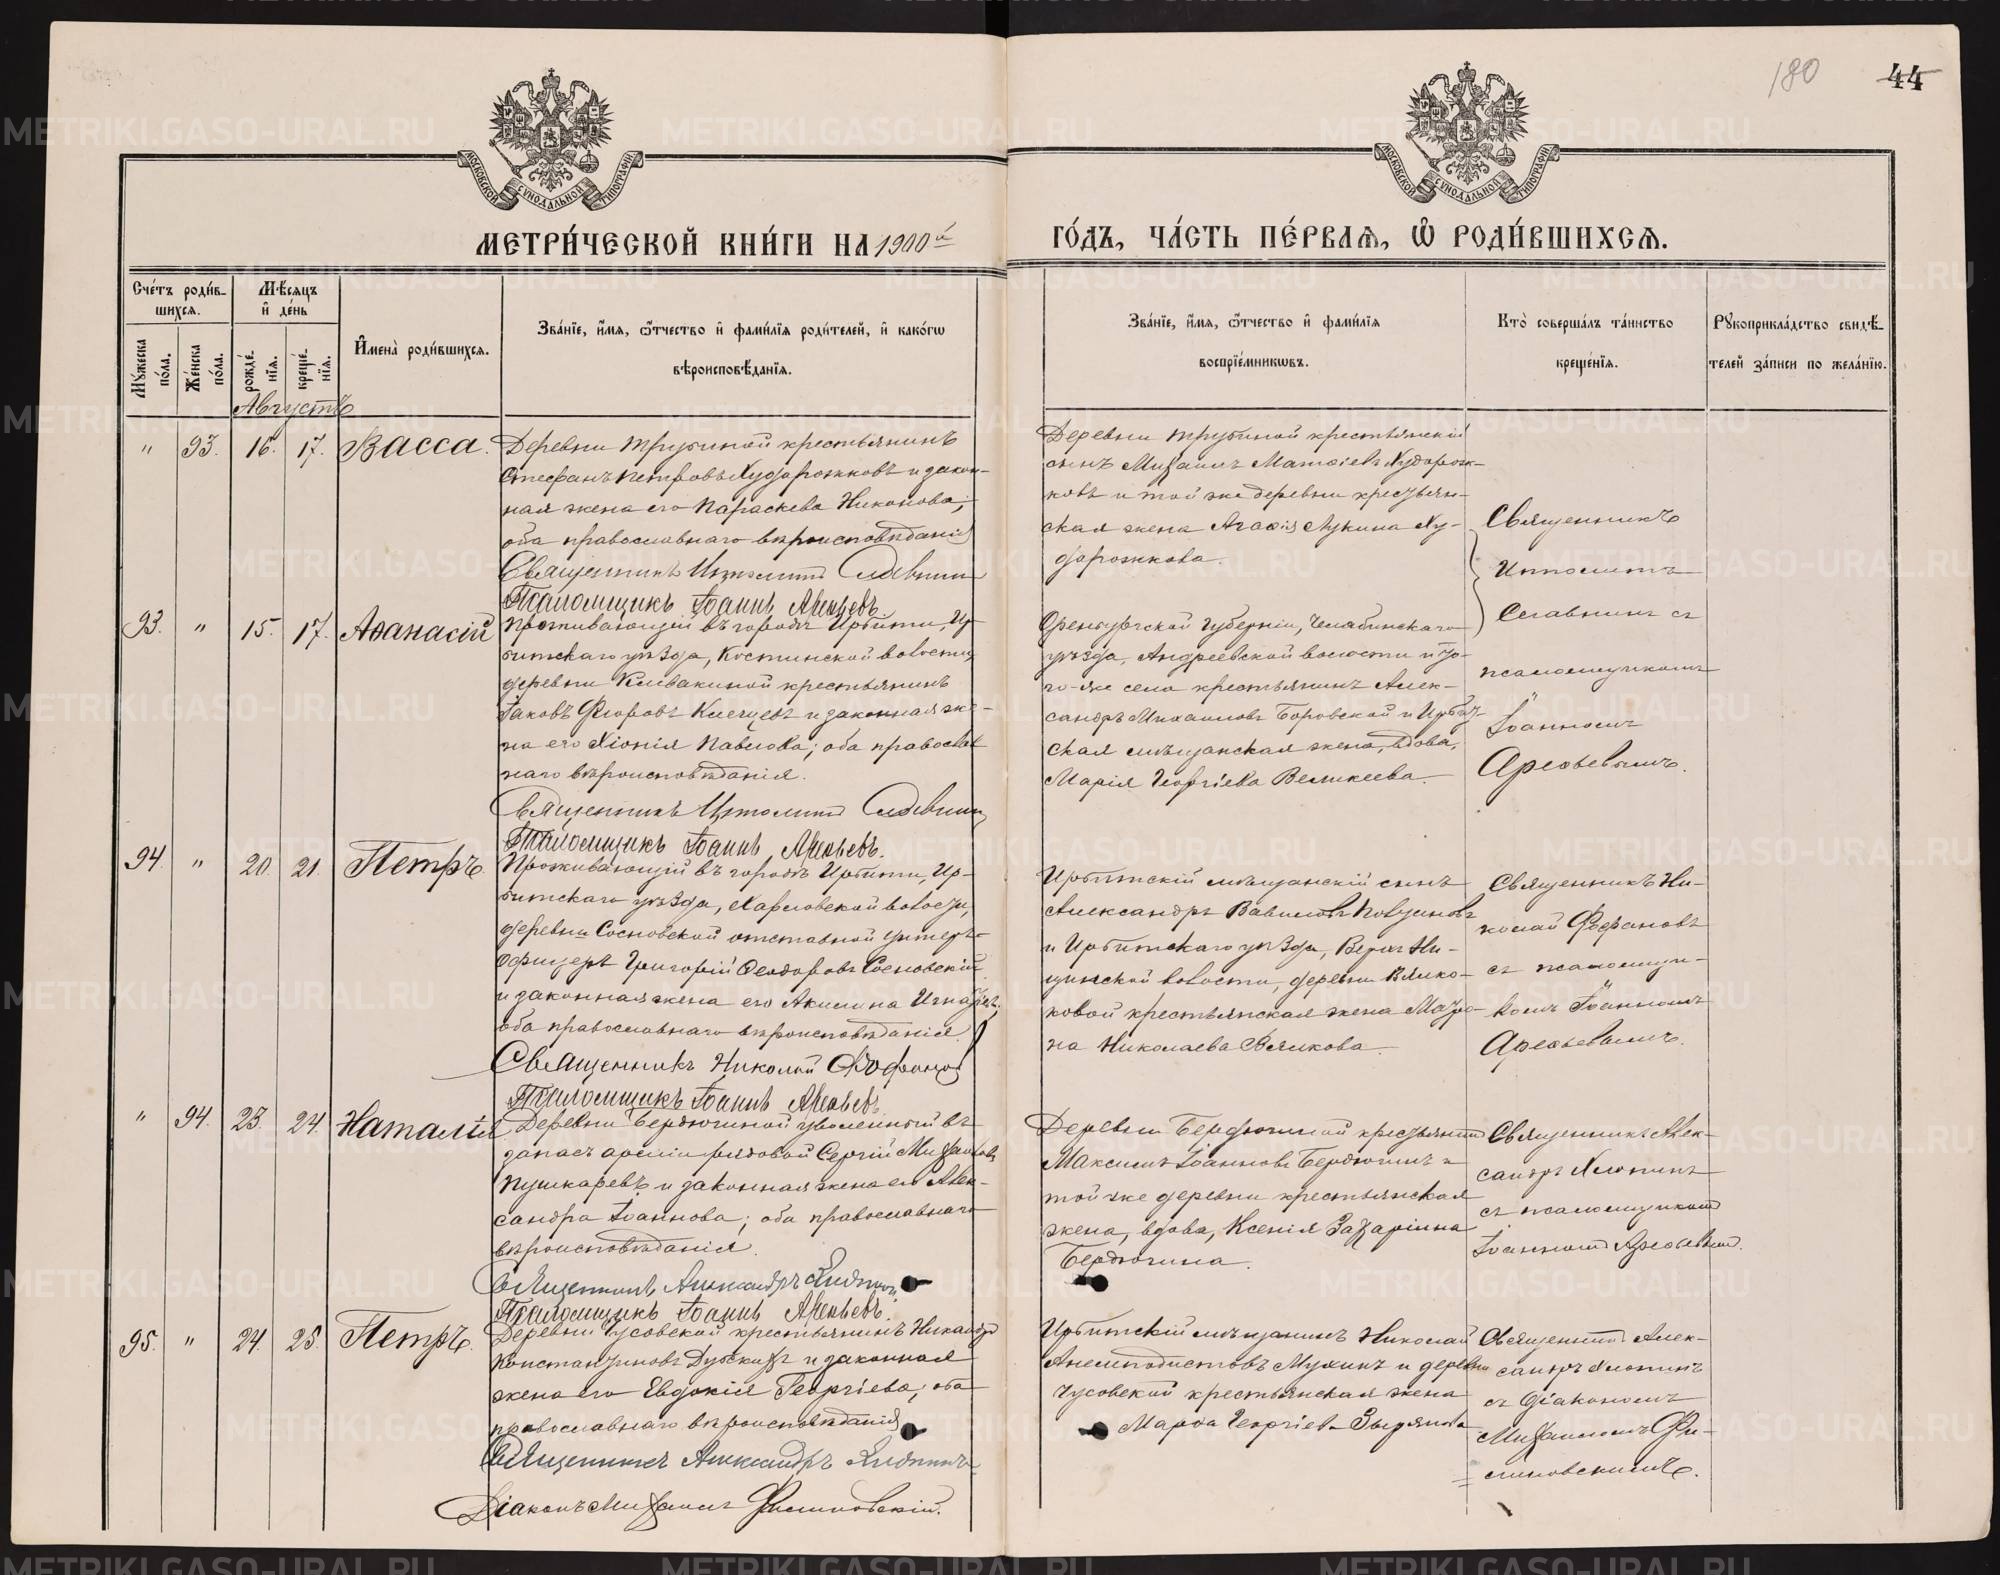 180
44
МОСКОВСКОЙ СУНОДАЛЬНОЙ ТИПОГРАФІИ
МОСКОВСКОЙ СУНОДАЛЬНОЙ ТИПОГРАФІИ
МЕТРИ́ЧЕСКОЙ КНИ́ГИ НА 1900й
ГО́ДЪ, ЧА́СТЬ ПЕ́РВАѦ, Ѡ҆ РОДИ́ВШИХСѦ.
Сче́тъ роди́в-
шихсѧ.
Мѣ́сѧцъ
и҆ де́нь
Мꙋ́жеска по́ла.
Же́нска по́ла.
рожде́-нїѧ.
креще́-нїѧ.
И҆мена̀ роди́вшихсѧ.
Зва́нїе, и҆́мѧ, ѻ҆́тчество и҆ фами́лїѧ роди́телей, и҆ како́гѡ
вѣроисповѣ́данїѧ.
Зва́нїе, и҆́мѧ, ѻ҆́тчество и҆ фами́лїѧ
воспрїе́мникѡвъ.
Кто̀ соверша́лъ та́инство
креще́нїѧ.
Рꙋкоприкла́дство свидѣ́-
телей за́писи по жела́нїю.
Августъ
" 93. 16. 17. Васса.
Деревни Трубиной крестьянинъ
Стефанъ Петровъ Худорожковъ и закон-
ная жена его Параскева Никонова;
оба православнаго вѣроисповѣданія
Священникъ Ипполитъ Славнин
Псаломщикъ Іоаннъ Арефьевъ.
Деревни Трубиной крестьянскій
сынъ Михаилъ Матѳіевъ Худорож-
ковъ и той же деревни крестьян-
ская жена Агаѳія Лукина Ху-
дорожкова.
Священникъ
Ипполитъ
Славнинъ съ
псаломщикомъ
Іоанномъ
Арефьевымъ.
93. " 15. 17. Аѳанасій
Проживающій въ городѣ Ирбити, Ир-
битскаго уѣзда, Костинской волости,
деревни Кивакиной крестьянинъ
Іаковъ Флоровъ Клещевъ и законная же-
на его Хіонія Павлова; оба православ
наго вѣроисповѣданія.
Священникъ Ипполитъ Славнин
Псаломщикъ Іоаннъ Арефьевъ.
Оренбургской губерніи, Челябинскаго
уѣзда, Андреевской волости и то-
го-же села крестьянинъ Алек-
сандръ Михаиловъ Боровской и Ирбит-
ская мѣщанская жена, вдова,
Марія Георгіева Великеева.
94. " 20. 21. Петръ.
Проживающій въ городѣ Ирбити, Ир-
битскаго уѣзда, Харловской волости,
деревни Сосновской отставной унтеръ-
офицеръ Григорій Ѳеодоровъ Сосновскій
и законная жена его Акилина Игнатіева;
оба православнаго вѣроисповѣданія.
Священникъ Николай Фофановъ
Псаломщикъ Іоаннъ Арефьевъ.
Ирбитскій мѣщанскій сынъ
Александръ Вавиловъ
и Ирбитскаго уѣзда, Верхъ-Ни-
цинской волости, деревни Вялко-
ковой крестьянская жена Матро-
на Николаева Вялкова.
Священникъ Ни-
колай Фофановъ
съ псаломщи-
комъ Іоанномъ
Арефьевымъ.
" 94. 23. 24. Наталія
Деревни Бердюгиной уволенный въ
запасъ арміи рядовой Сергій Михаиловъ
Пушкаревъ и законная жена его Алек-
сандра Іоаннова; оба православнаго
вѣроисповѣданія.
Священникъ Александръ Хлопинъ
Псаломщикъ Іоаннъ Арефьевъ.
Деревни Бердюгиной крестьянинъ
Максимъ Іоанновъ Бердюгинъ и
той же деревни крестьянская
жена, вдова, Ксенія Захаріина
Бердюгина.
Священникъ Алек-
сандръ Хлопинъ
съ псаломщикомъ
Іоанномъ Арефьевым.
95. " 24. 25. Петръ.
Деревни Чусовской крестьянинъ Никандръ
Константиновъ Дубскихъ и законная
жена его Евдокія Георгіева; оба
православнаго вѣроисповѣданія
Священникъ Александръ Хлопинъ
Діаконъ Михаилъ Филиповскій.
Ирбитскій мѣщанинъ Николай
Анемподистовъ Мухинъ и деревни
Чусовской крестьянская жена
Марѳа Георгіева Зырянова
Священникъ Алек-
сандръ Хлопинъ
съ діакономъ
Михаиломъ Фи-
липовскимъ.
METRIKI.GASO-URAL.RU